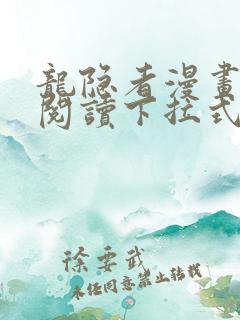 龍隐者漫畫
閱讀下拉式
徐要武
未经同意禁止转载